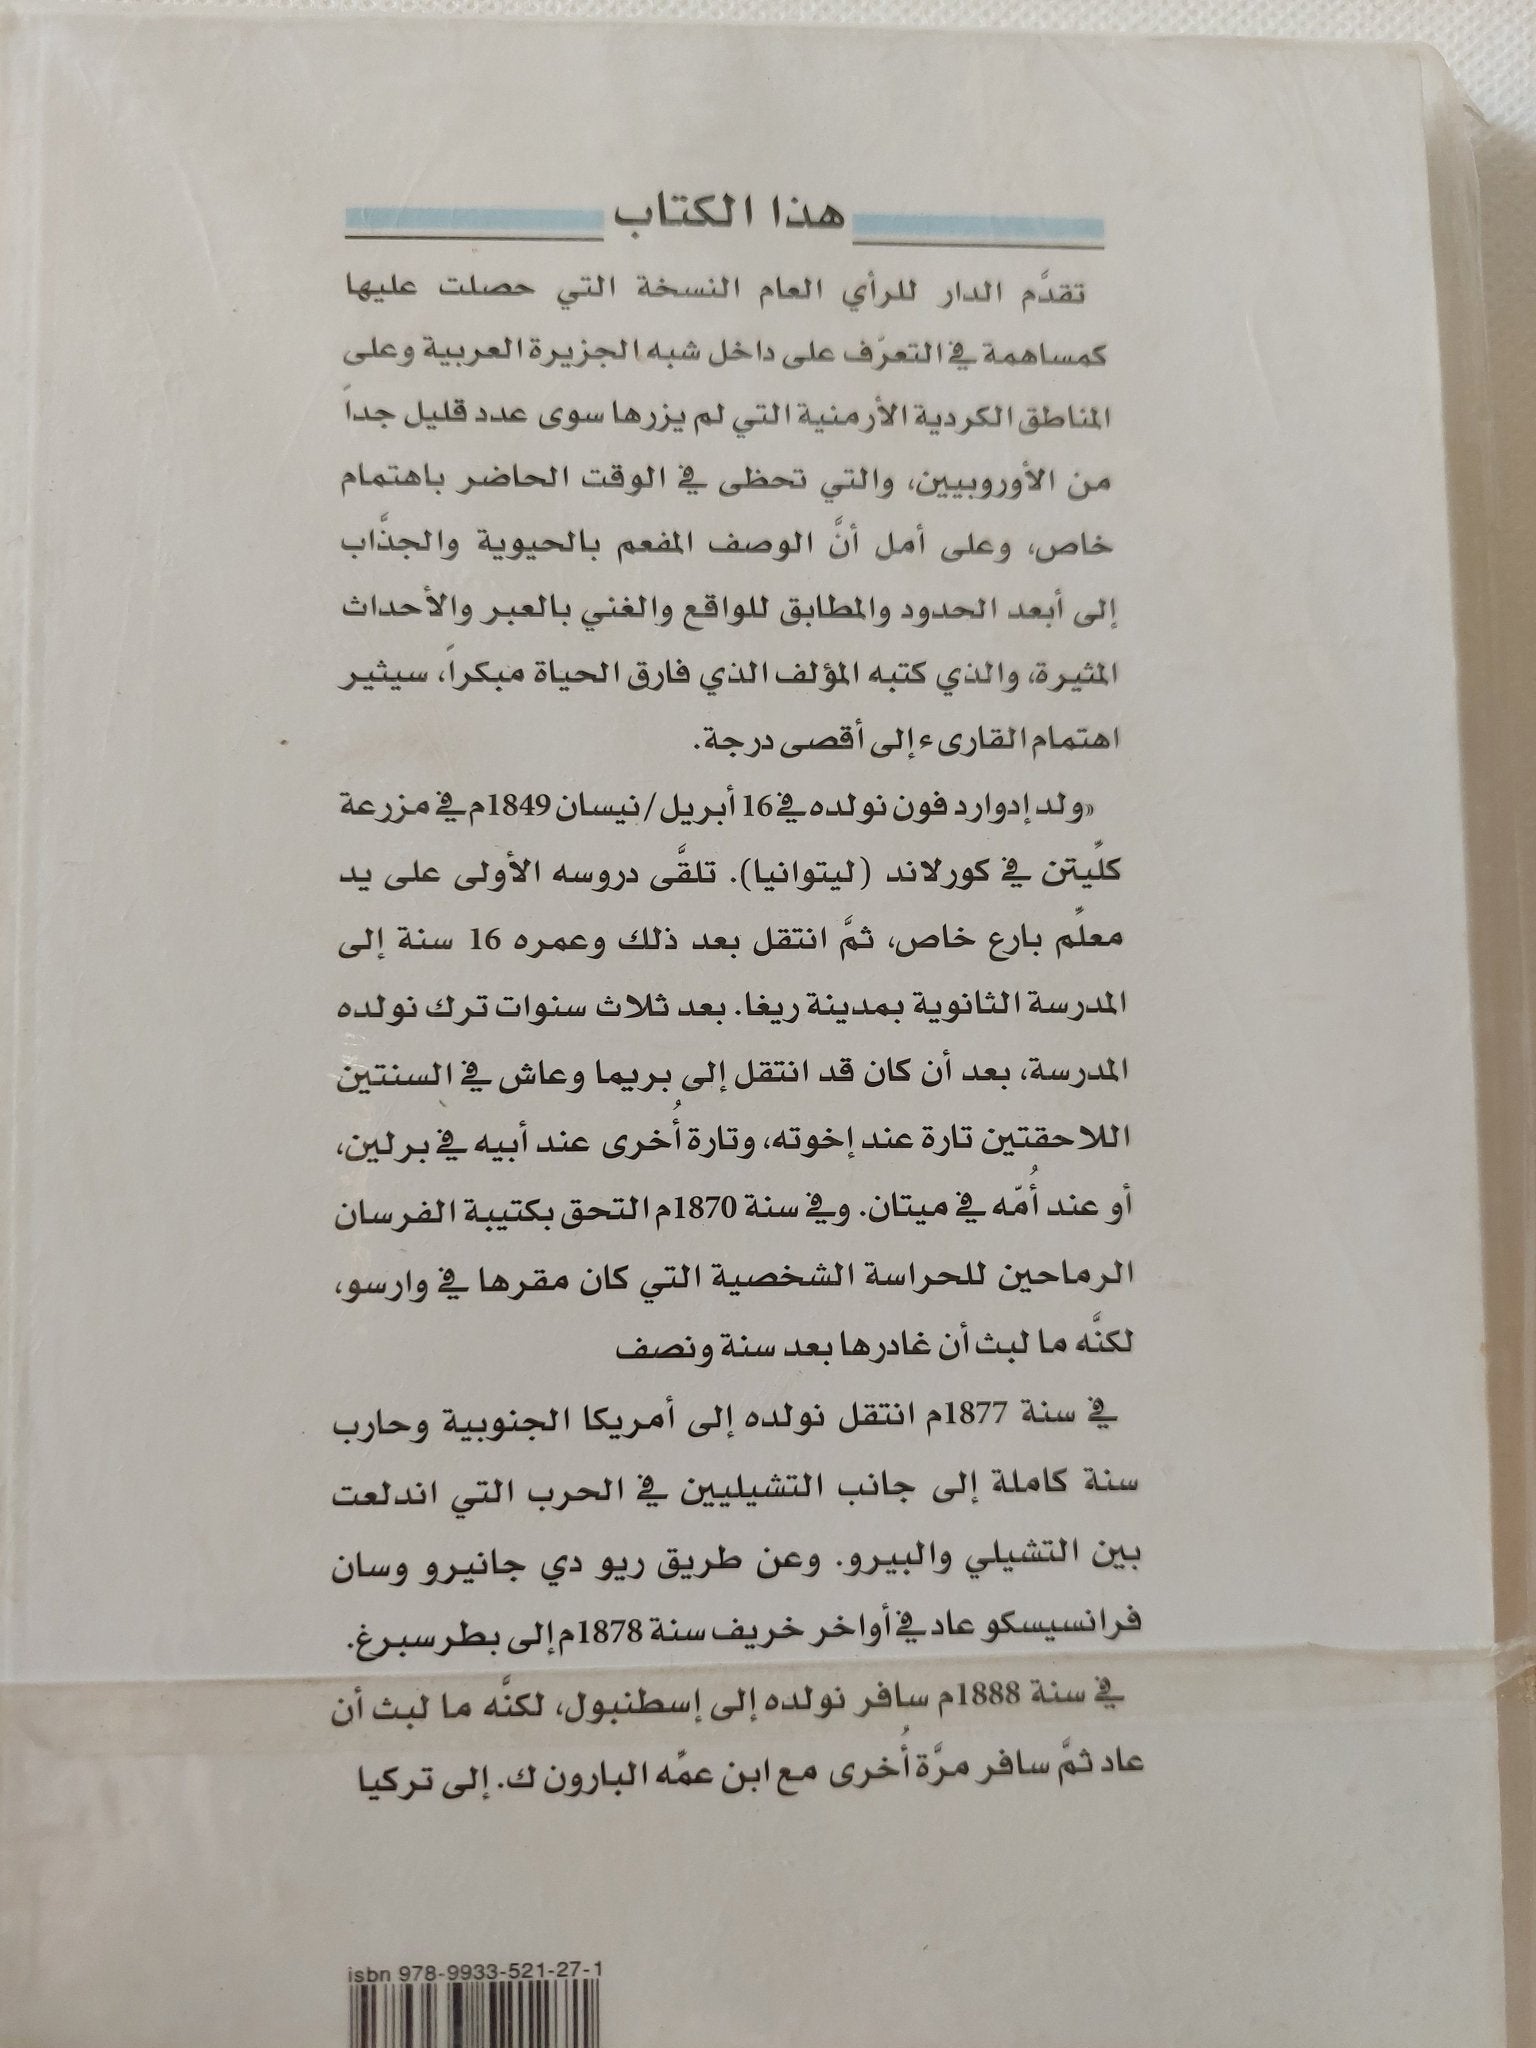 هذا الكتاب
تقدَّم الدار للرأي العام النسخة التي حصلت عليها
كمساهمة في التعرّف على داخل شبه الجزيرة العربية وعلى
المناطق الكردية الأرمنية التي لم يزرها سوى عدد قليل جداً
من الأوروبيين، والتي تحظى في الوقت الحاضر باهتمام
خاص، وعلى أمل أنَّ الوصف المفعم بالحيوية والجذَّاب
إلى أبعد الحدود والمطابق للواقع والغني بالعبر والأحداث
المثيرة، والذي كتبه المؤلف الذي فارق الحياة مبكراً، سيثير
اهتمام القارىء إلى أقصى درجة.
«ولد إدوارد فون نولده في 16 أبريل/نيسان 1849م في مزرعة
كلِّيتن في كورلاند (ليتوانيا). تلقَّى دروسه الأولى على يد
معلِّم بارع خاص، ثمَّ انتقل بعد ذلك وعمره 16 سنة إلى
المدرسة الثانوية بمدينة ريغا. بعد ثلاث سنوات ترك نولده
المدرسة، بعد أن كان قد انتقل إلى بريما وعاش في السنتين
اللاحقتين تارة عند إخوته، وتارة أُخرى عند أبيه في برلين،
أو عند أُمّه في ميتان. وفي سنة 1870م التحق بكتيبة الفرسان
الرماحين للحراسة الشخصية التي كان مقرها في وارسو،
لكنَّه ما لبث أن غادرها بعد سنة ونصف
في سنة 1877م انتقل نولده إلى أمريكا الجنوبية وحارب
سنة كاملة إلى جانب التشيليين في الحرب التي اندلعت
بين التشيلي والبيرو. وعن طريق ريو دي جانيرو وسان
فرانسيسكو عاد في أواخر خريف سنة 1878م إلى بطرسبرغ.
في سنة 1888م سافر نولده إلى إسطنبول، لكنَّه ما لبث أن
عاد ثمَّ سافر مرَّة أُخرى مع ابن عمِّه البارون ك. إلى تركيا
isbn 978-9933-521-27-1